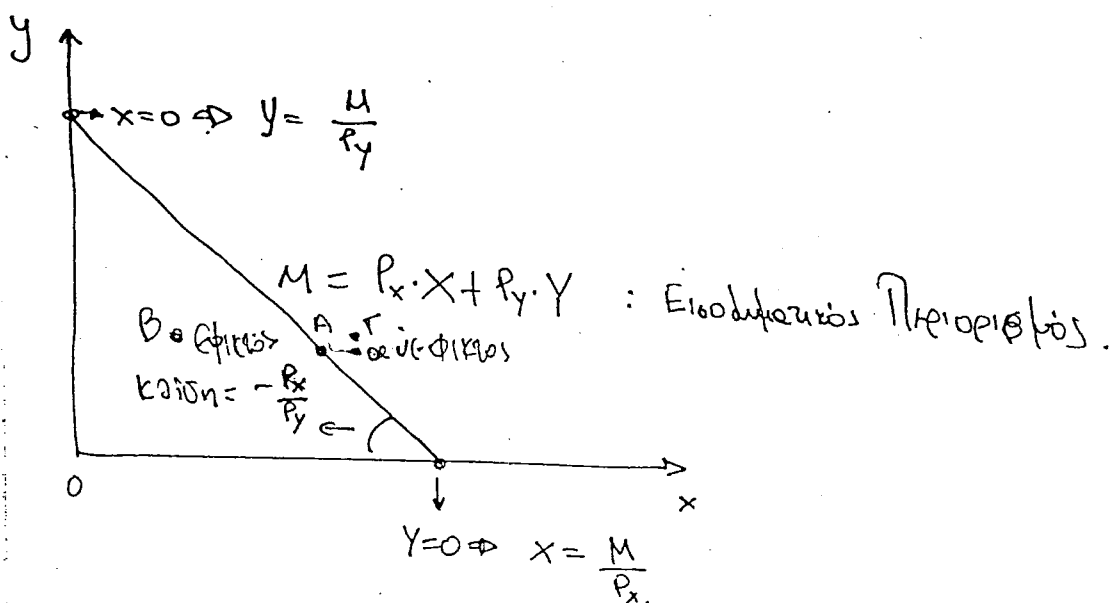 y
x=0 ⇒ y = M/Py
M = Px·X + Py·Y : Εισοδηματικός Περιορισμός.
B εφικτός
A Γ
ανέφικτος
κλίση = -Px/Py ←
0
x
Y=0 ⇒ X = M/Px.